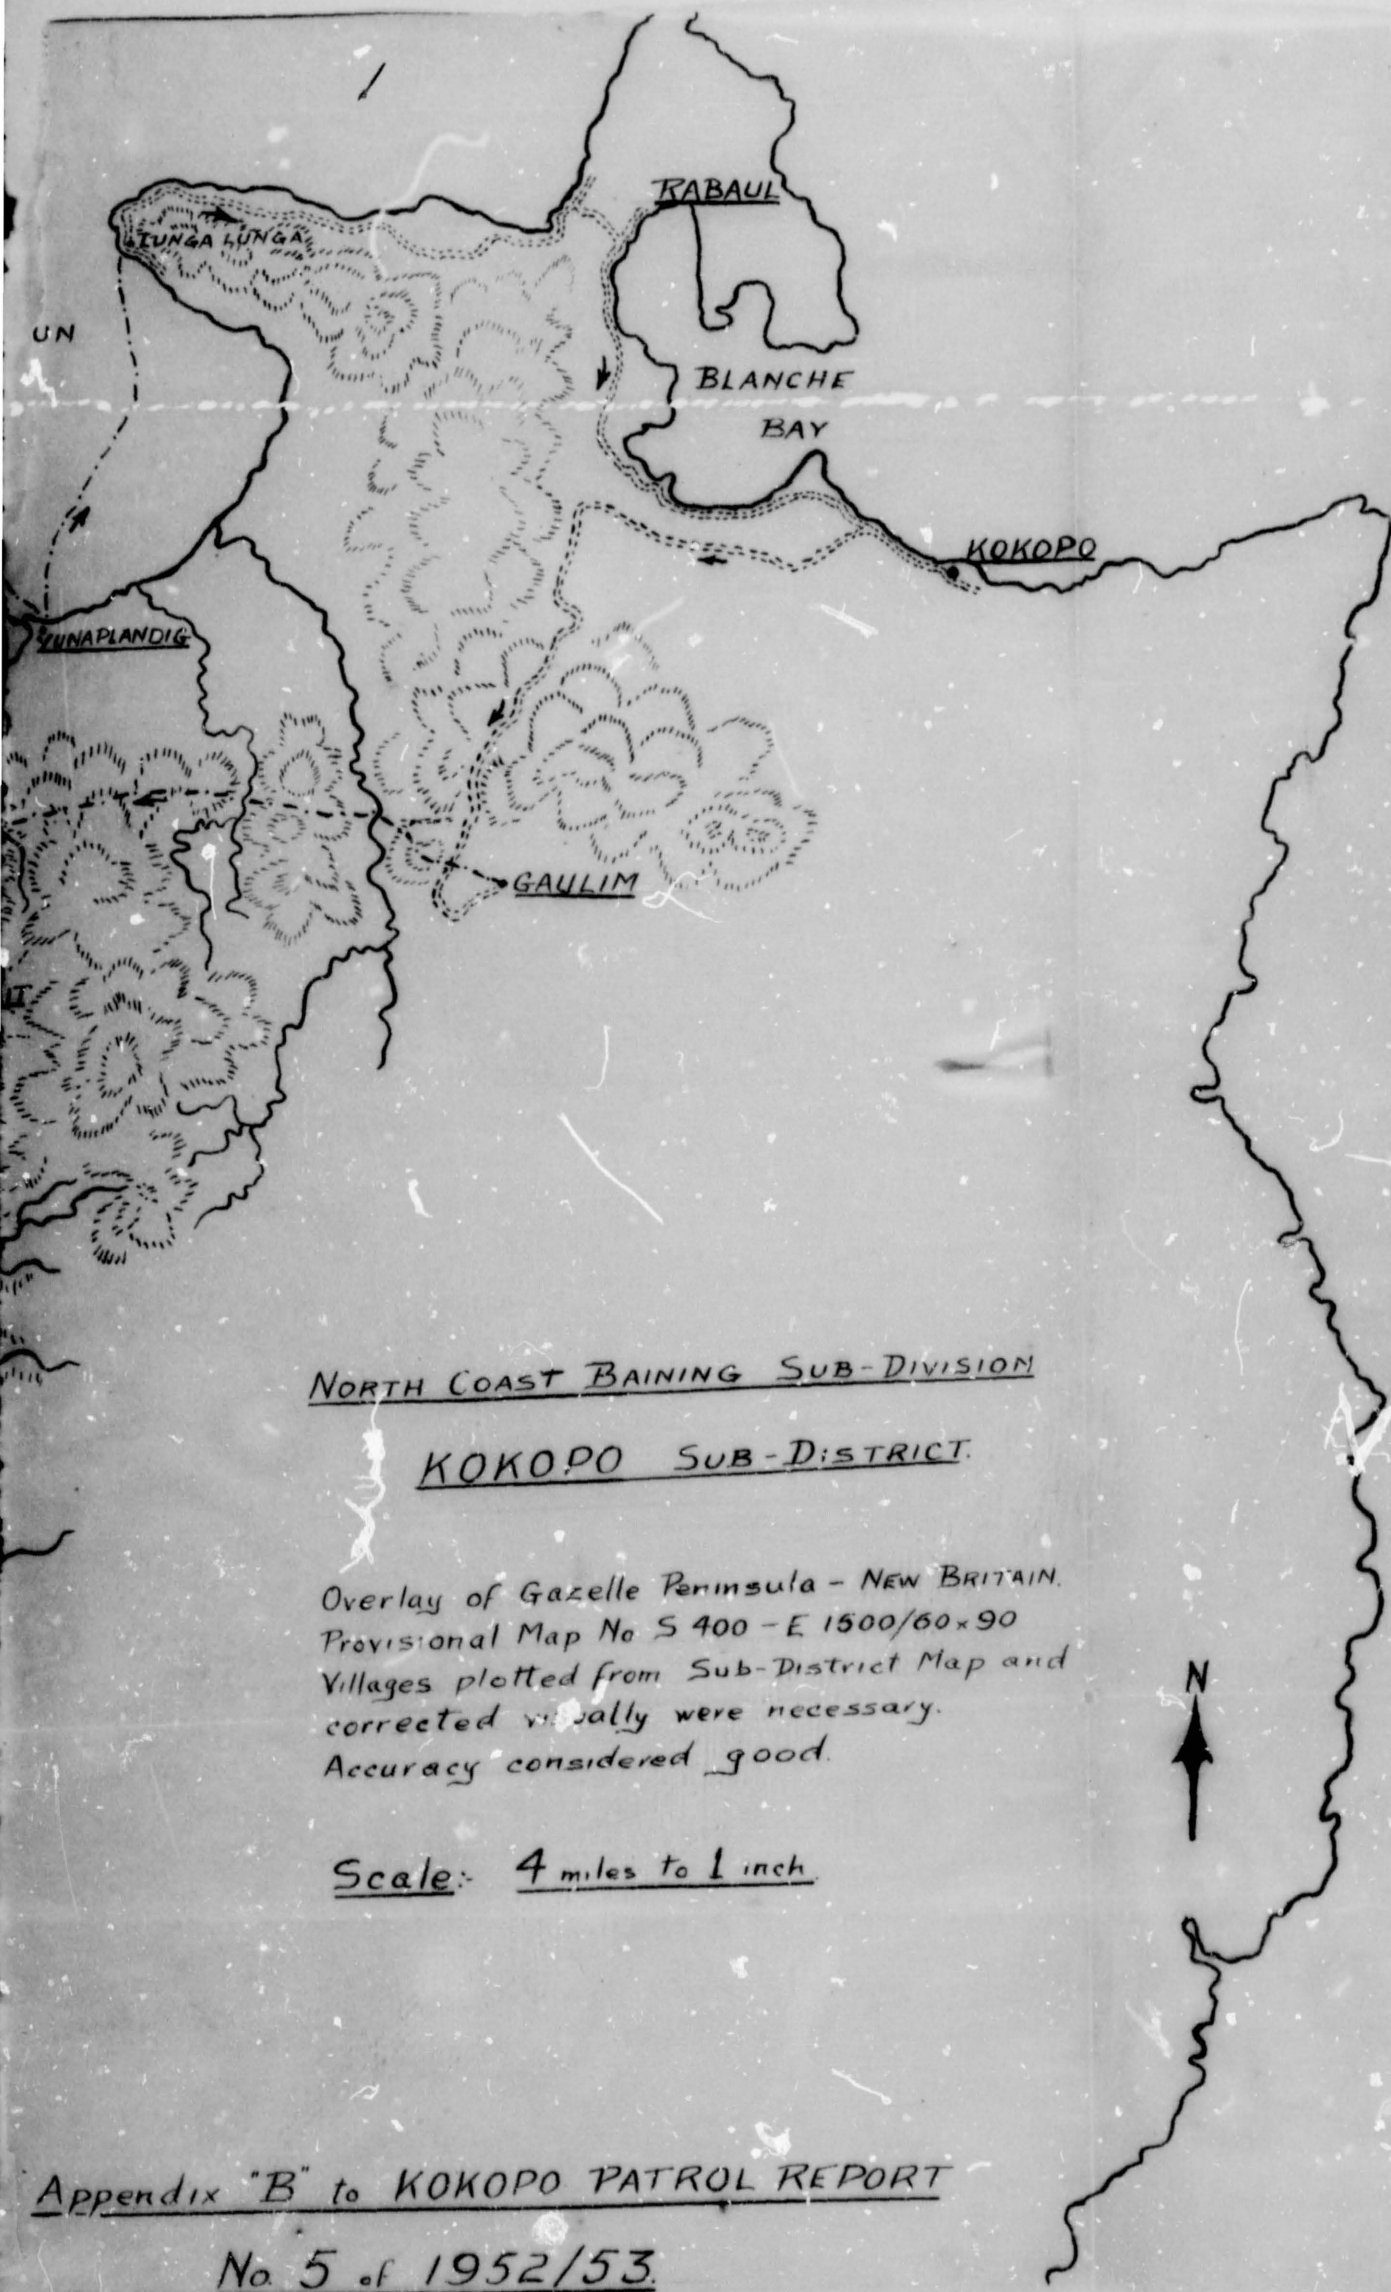 RABAUL
LUNGA LUNGA
UN
BLANCHE
BAY
KOKOPO
YUNAPLANDIG
GAULIM
IT
NORTH COAST BAINING SUB-DIVISION
KOKOPO SUB-DISTRICT.
Overlay of Gazelle Peninsula - NEW BRITAIN.
Provisional Map No S 400 - E 1500/60x90
Villages plotted from Sub-District Map and
corrected were necessary.
Accuracy considered good.
N
Scale:- 4 miles to 1 inch
Appendix "B" to KOKOPO PATROL REPORT
No. 5 of 1952/53.